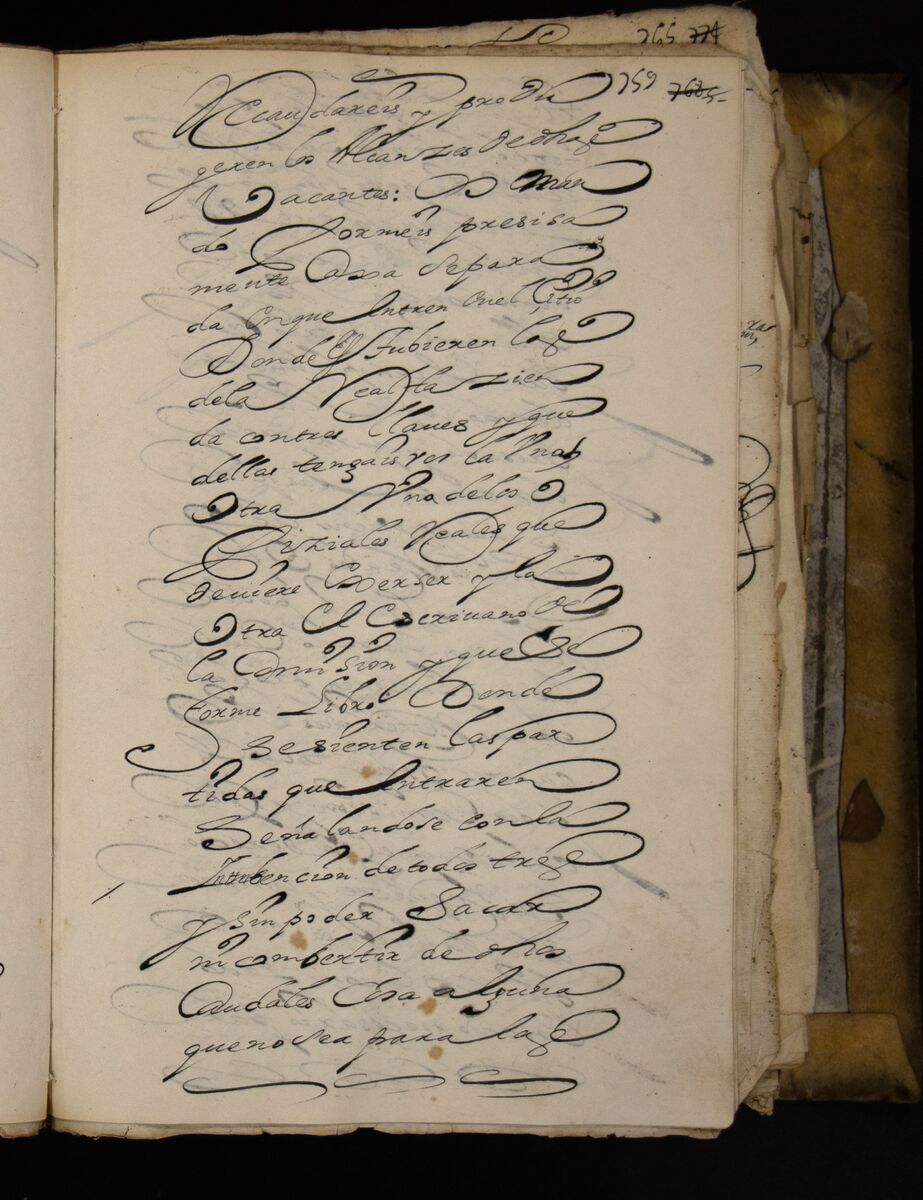 765 774
759 7685
Recaudareis y produ
geren los Alcanzes de dhas
Vacantes: Os man
do formeis presisa
mente Caxa separa
da en que entren en el sitio
Donde estubieren las
dela Real hazien
da con tres llaves y que
dellas tengais vos la una
otra uno delos o
fiziales Reales que
deviere haver y la
otra el escrivano de
la Comision y que se
forme Libro Donde
se sienten las par
tidas que entraren
señalandose con la
Interbencion de todos tres
y sin poder sacar
ni combertir de dhos
Caudales Cosa alguna
que no sea para las